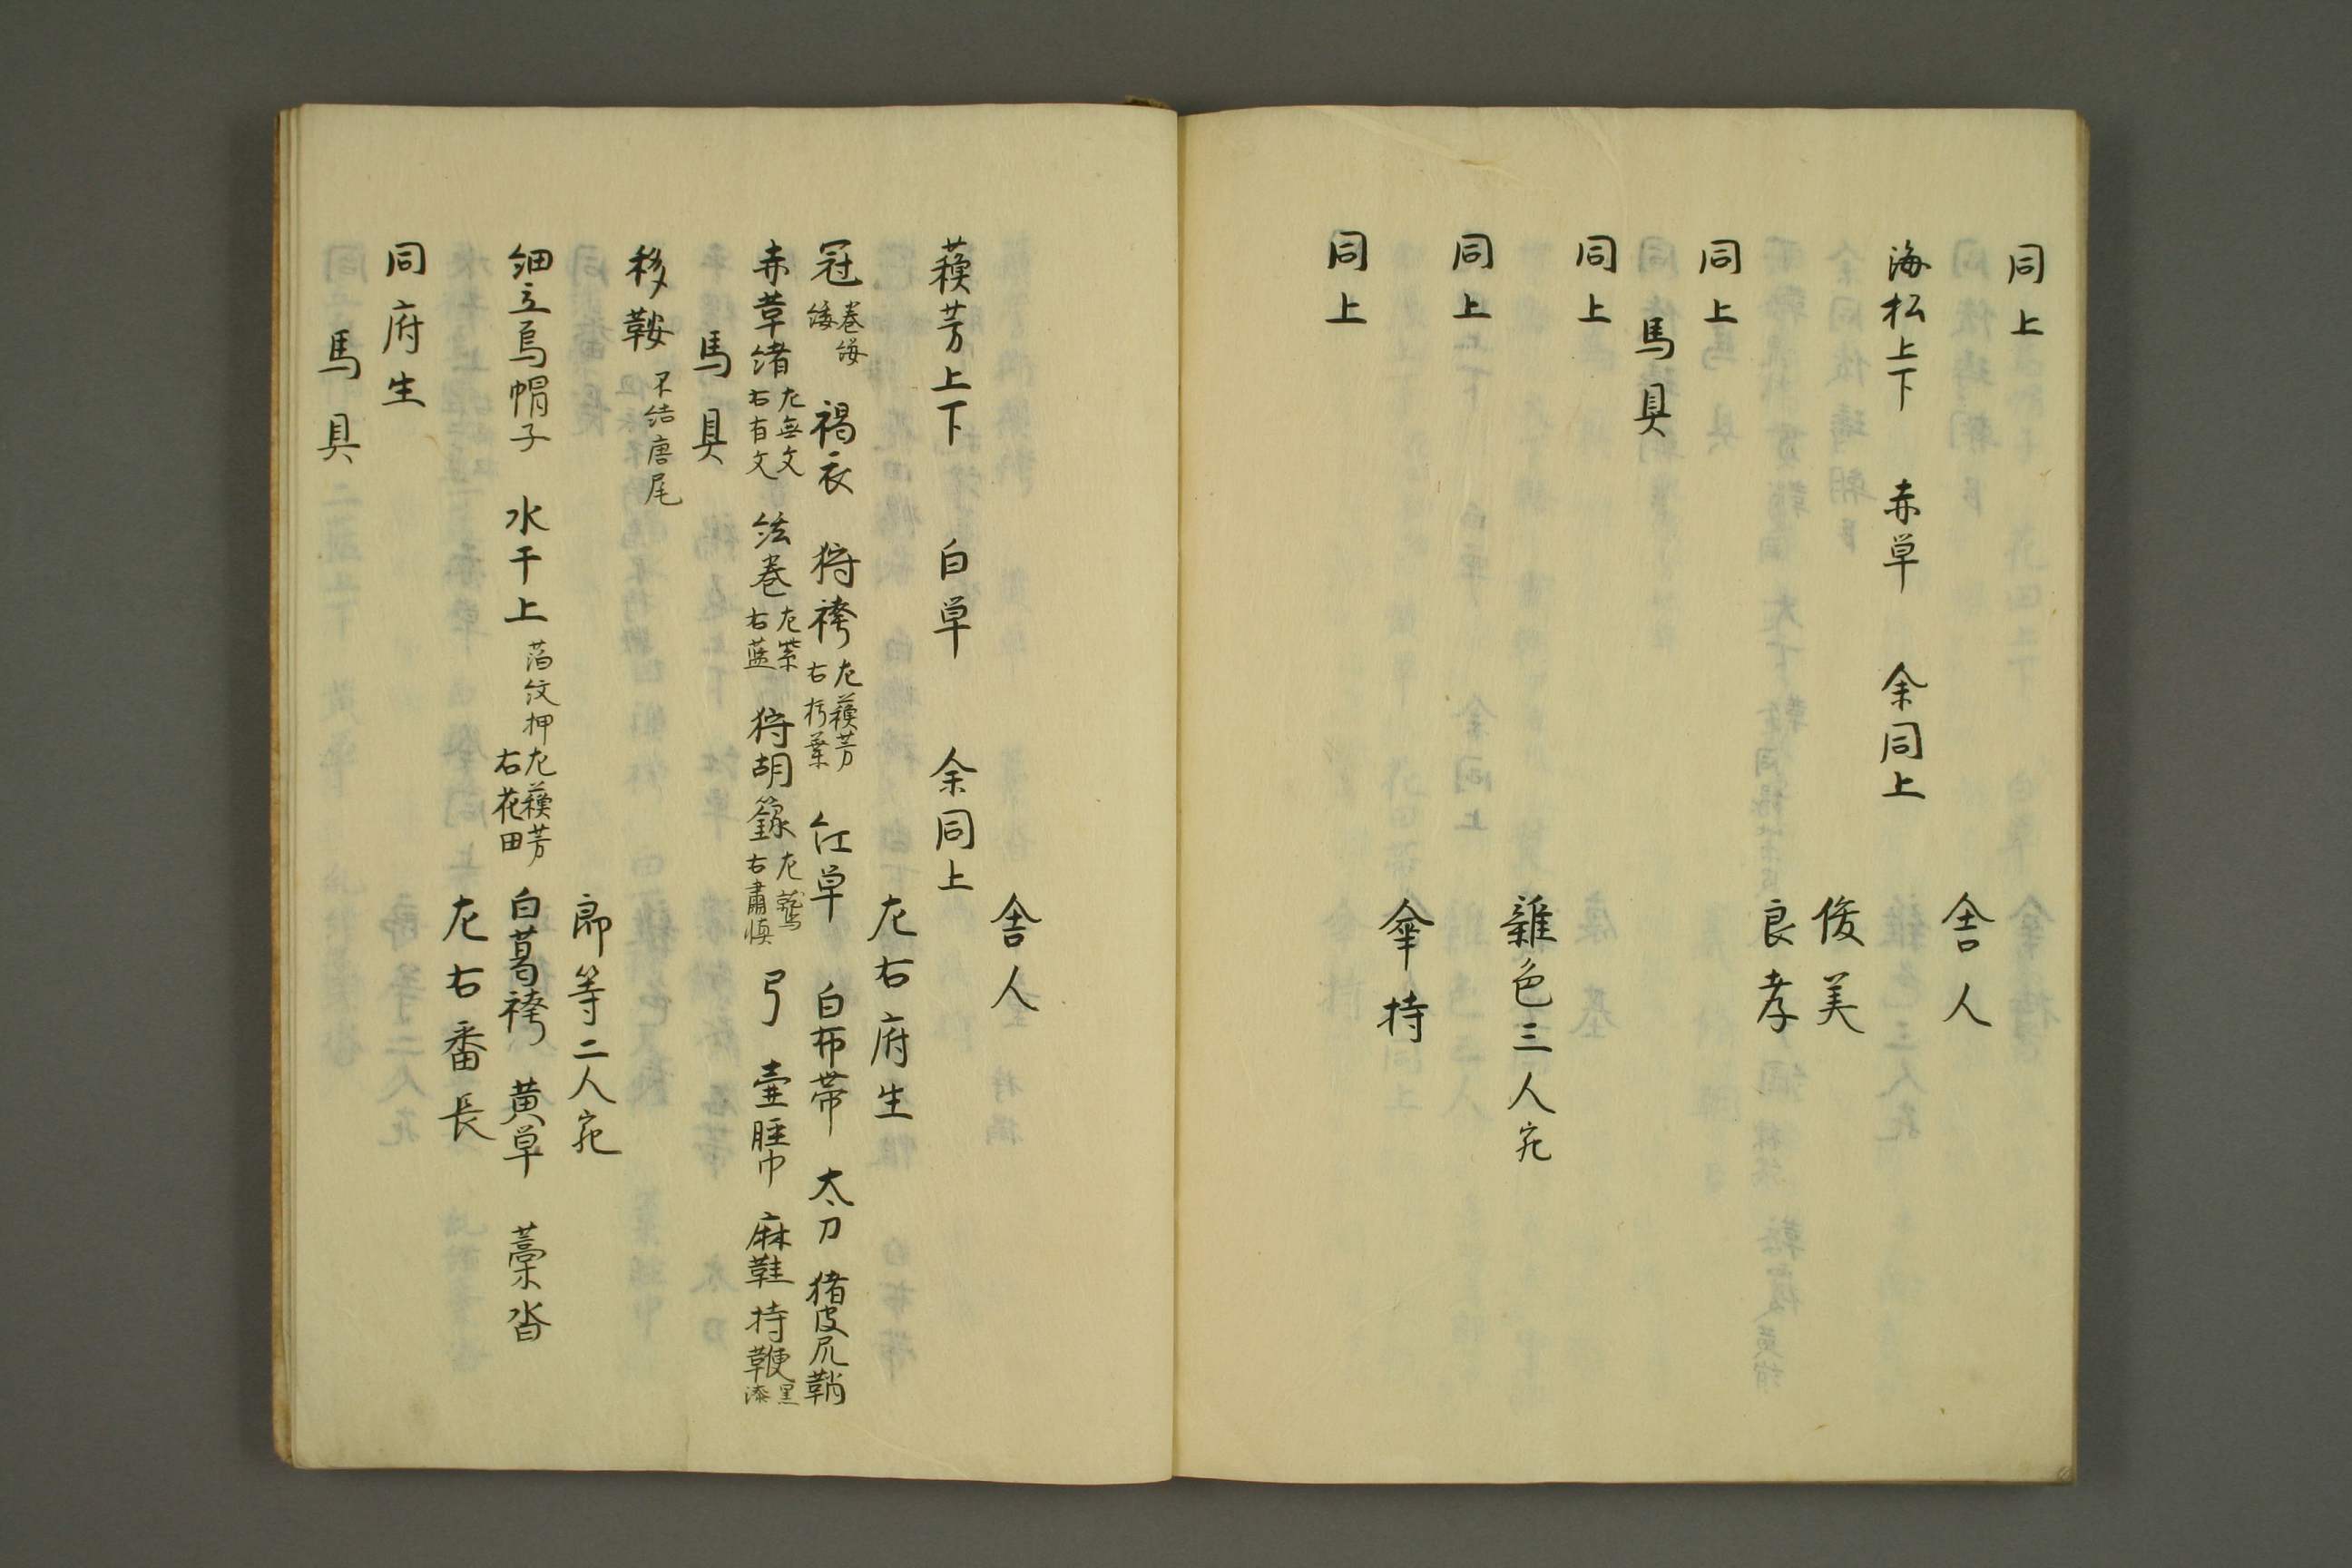 同上
舎人
海松上下　赤草　余同上
俊美
良孝
同上
馬具
同上
雑色三人宛
同上
傘持
同上
舎人
蘓芳上下　白草　余同上
左右府生
冠巻緌　褐衣　狩袴左蘓芳右朽葉　紅草　白布帯　太刀　猪皮尻鞘
赤草緒左無文右有文　絃巻左紫右藍　狩胡籙左鷲右粛慎　弓　壷脛巾　麻鞋　持鞭黒漆
馬具
移鞍不結唐尾
郎等二人宛
細立烏帽子　水干上萡紋押左蘓芳右花田　白葛袴　黄草　藁沓
左右番長
同府生
馬具